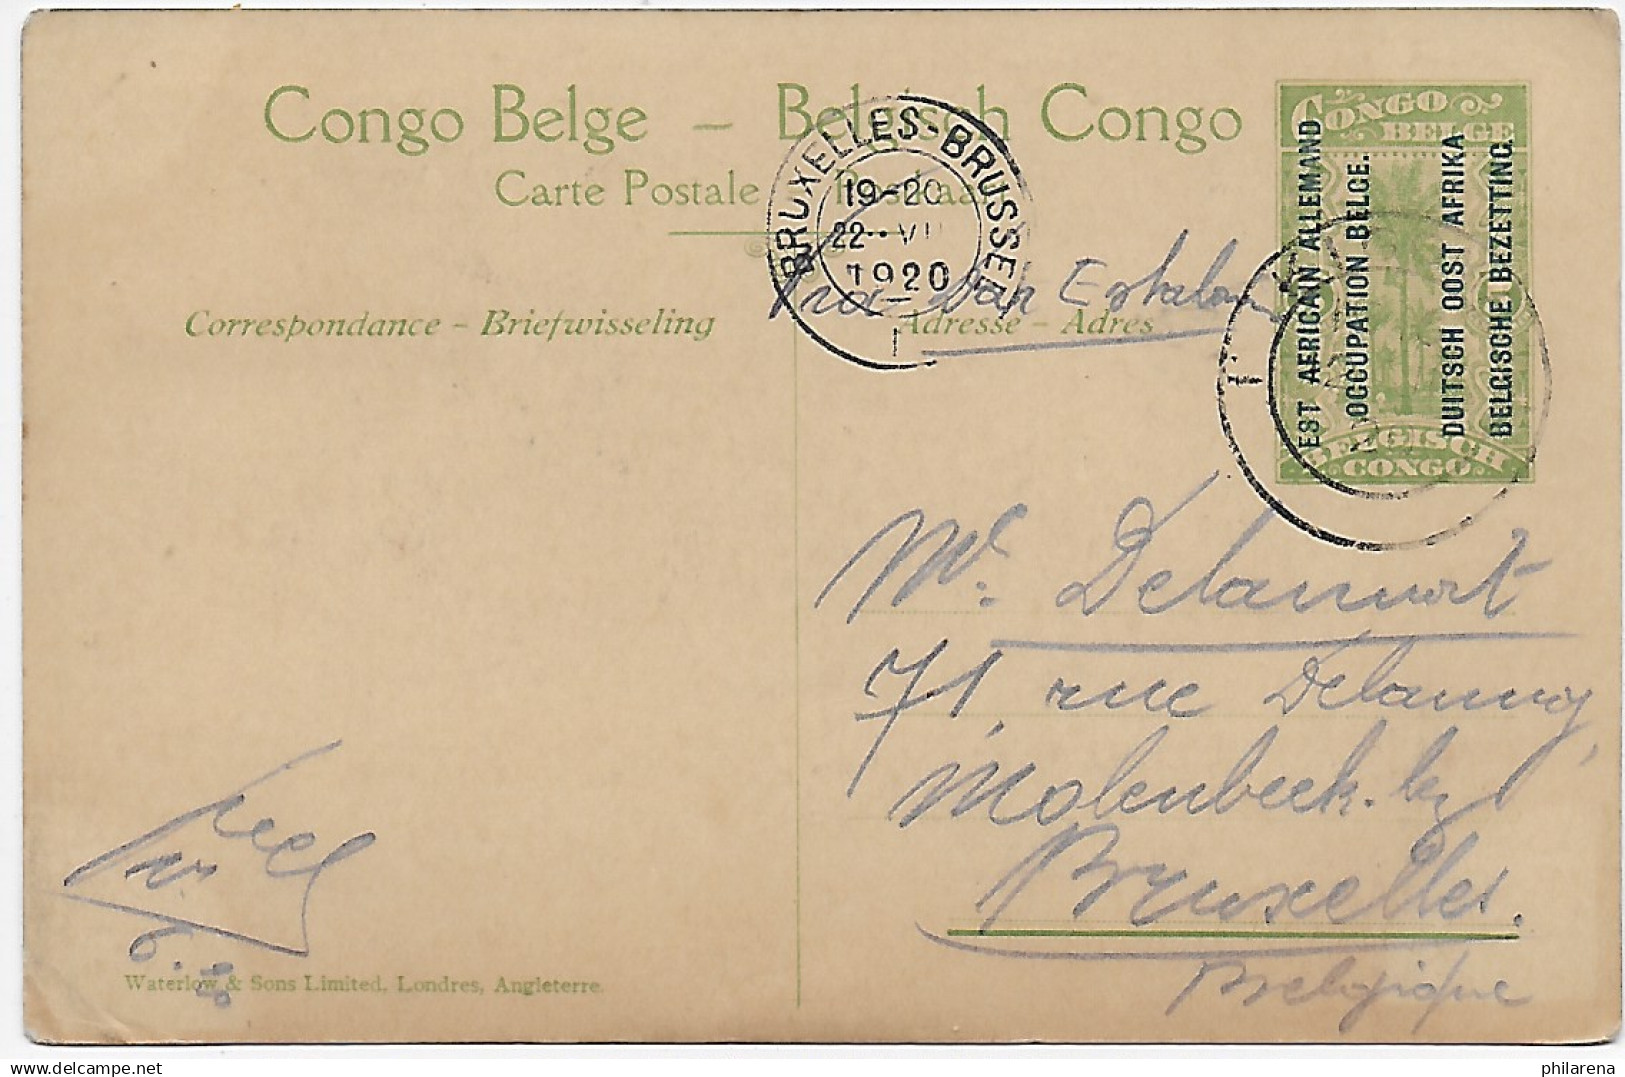 Congo Belge – Belgisch Congo
Carte Postale – Postkaart
BRUXELLES-BRUSSEL
19-20
22 VII
1920
1
CONGO
BELGE
EST AFRICAIN ALLEMAND
OCCUPATION BELGE.
DUITSCH OOST AFRIKA
BELGISCHE BEZETTING.
BELGISCH
CONGO
Via Dar Es
Correspondance – Briefwisseling
Adresse – Adres
Mr. Delannoit
71, rue Delaunoy,
Molenbeek.
Bruxelles.
Belgique
6. 20
Waterlow & Sons Limited, Londres, Angleterre.
philarena